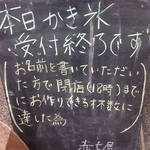 本日かき氷
受付終了です
(お名前を書いていただい
た方で閉店(18時)まで
にお作りできる杯数に
達した為
赤七屋